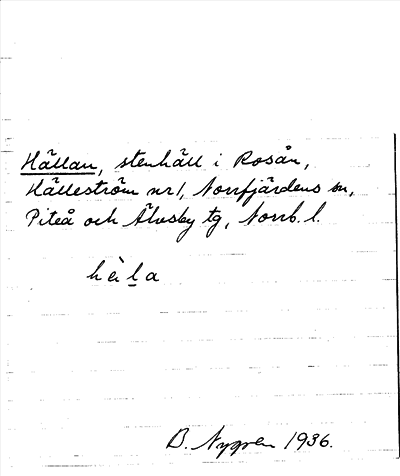 Hällan, stenhäll i Rosån,
Hälleström nr 1, Norrfjärdens sn,
Piteå och Älvsby tg, Norrb. l.
hèḻa
B. Nygren 1936.